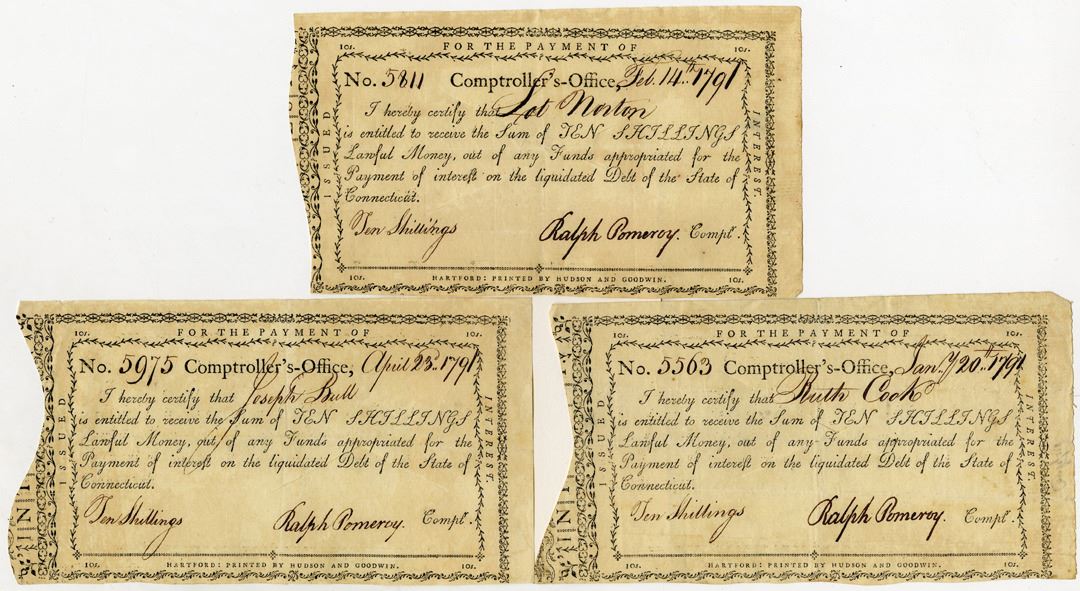 10s. FOR THE PAYMENT OF 10s.
No. 5811 Comptroller's-Office, Feb. 14th. 1791
I hereby certify that Lot Norton
is entitled to receive the Sum of TEN SHILLINGS
Lawful Money, out of any Funds appropriated for the
Payment of interest on the liquidated Debt of the State of
Connecticut.
Ten Shillings Ralph Pomeroy. Compt.
10s. HARTFORD: PRINTED BY HUDSON AND GOODWIN. 10s.
ISSUED
INTEREST.
10s. FOR THE PAYMENT OF 10s.
No. 5975 Comptroller's-Office, April 23d. 1791
I hereby certify that Joseph Bull
is entitled to receive the Sum of TEN SHILLINGS
Lawful Money, out of any Funds appropriated for the
Payment of interest on the liquidated Debt of the State of
Connecticut.
Ten Shillings Ralph Pomeroy. Compt.
10s. HARTFORD: PRINTED BY HUDSON AND GOODWIN. 10s.
ISSUED
INTEREST.
10s. FOR THE PAYMENT OF 10s.
No. 5563 Comptroller's-Office, Jany. 20th. 1791
I hereby certify that Ruth Cook
is entitled to receive the Sum of TEN SHILLINGS
Lawful Money, out of any Funds appropriated for the
Payment of interest on the liquidated Debt of the State of
Connecticut.
Ten Shillings Ralph Pomeroy. Compt.
10s. HARTFORD: PRINTED BY HUDSON AND GOODWIN. 10s.
ISSUED
INTEREST.